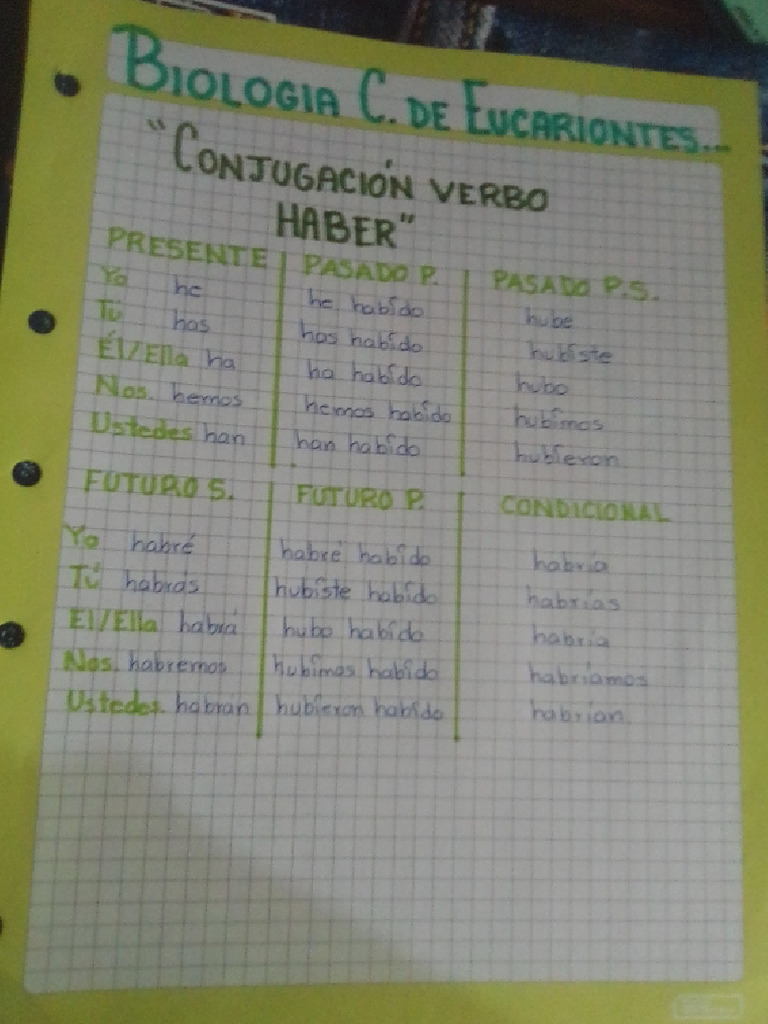 BIOLOGIA C. DE EUCARIONTES...
"CONJUGACIÓN VERBO
HABER"
PRESENTE PASADO P. PASADO P.S.
Yo he he habido hube
Tú has has habido hubiste
Él/Ella ha ha habido hubo
Nos. hemos hemos habido hubimos
Ustedes han han habido hubieron
FUTURO S. FUTURO P. CONDICIONAL
Yo habré habré habido habría
Tú habrás hubiste habido habrías
El/Ella habrá hubo habido habría
Nos. habremos hubimos habido habríamos
Ustedes. habran hubieron habido habrían